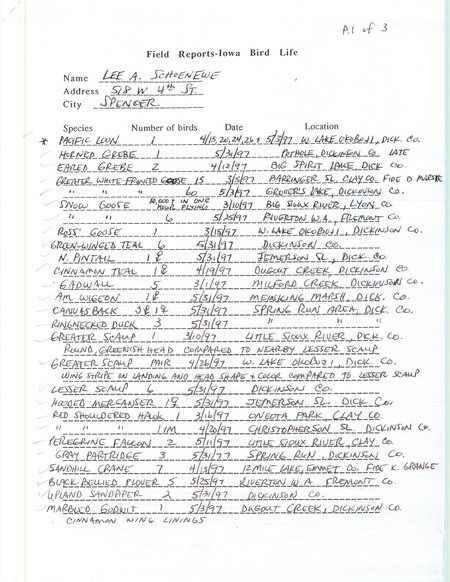 P.1 of 3
Field Reports-Iowa Bird Life
Name LEE A. SCHOENEWE
Address 518 W 4th ST
City SPENCER
Species Number of birds Date Location
* PACIFIC LOON 1 4/15,20,24,26 + 5/3/97 W. LAKE OKOBOJI, DICK. CO.
HORNED GREBE 1 5/31/97 POTHOLE, DICKINSON CO. LATE
EARED GREBE 2 4/12/97 BIG SPIRIT LAKE, DICK CO.
GREATER WHITE-FRONTED GOOSE 15 3/5/97 BARRINGER SL, CLAY CO. FIDE D
" " " 60 3/6/97 GROVERS LAKE, DICKINSON CO.
SNOW GOOSE 10,000+ IN ONE HOUR FLYING 3/10/97 BIG SIOUX RIVER, LYON CO.
" " 6 5/25/97 RIVERTON W.A., FREMONT CO.
ROSS' GOOSE 1 3/15/97 W. LAKE OKOBOJI, DICKINSON CO.
GREEN-WINGED TEAL 6 5/31/97 DICKINSON CO.
N. PINTAIL 1♂ 5/31/97 JEMERSON SL, DICK CO.
CINNAMIN TEAL 1♂ 4/19/97 DUGOUT CREEK, DICKINSON CO.
GADWALL 5 3/1/97 MILFORD CREEK, DICKINSON CO.
AM WIGEON 1♂ 5/31/97 MEINKING MARSH, DICK. CO.
CANVASBACK 3♂ 1♀ 5/31/97 SPRING RUN AREA, DICK. CO.
RINGNECKED DUCK 3 5/31/97 " " "
GREATER SCAUP 3/10/97 LITTLE SIOUX RIVER, DICK. CO.
ROUND, GREENISH HEAD COMPARED TO NEARBY LESSER SCAUP
GREATER SCAUP PAIR 4/26/97 W. LAKE OKOBOJI, DICK. CO.
WING STRIPE ON LANDING AND HEAD SHAPE + COLOR COMPARED TO LESSER SCAUP
LESSER SCAUP 6 5/31/97 DICKINSON CO.
HOODED MERGANSER 1♀ 5/31/97 JEMERSON SL. DICK CO.
RED SHOULDERED HAWK 1 3/16/97 ONEOTA PARK, CLAY CO.
" " " 1 IMM 4/20/97 CHRISTOPHERSON SL. DICKINSON CO.
PEREGRINE FALCON 2 5/11/97 LITTLE SIOUX RIVER, CLAY CO.
GRAY PARTRIDGE 3 5/31/97 SPRING RUN, DICKINSON CO.
SANDHILL CRANE 7 4/13/97 12 MILE LAKE, EMMET CO. FIDE K. GRANGE
BLACK-BELLIED PLOVER 5 5/25/97 RIVERTON W.A. FREMONT CO.
UPLAND SANDPIPER 2 5/31/97 DICKINSON CO.
MARBLED GODWIT 1 5/3/97 DUGOUT CREEK, DICKINSON CO.
CINNAMON WING LININGS